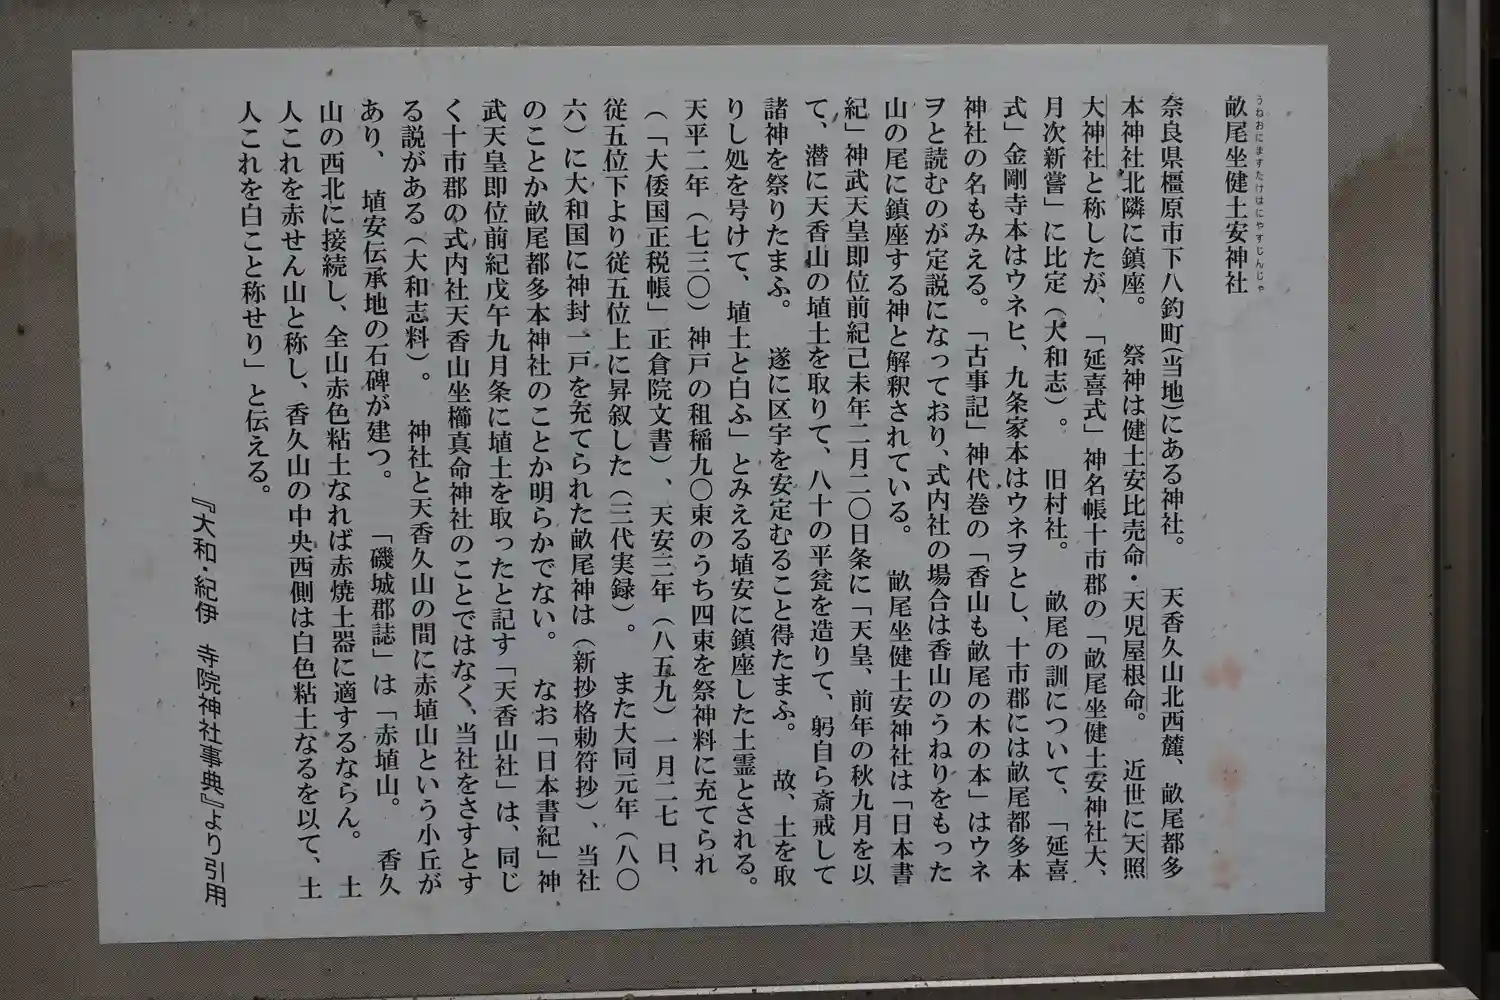 うねおにますたけはにやすじんじゃ
畝尾坐健土安神社
奈良県橿原市下八釣町(当地)にある神社。 天香久山北西麓、畝尾都多
本神社北隣に鎮座。 祭神は健土安比売命・天児屋根命。 近世に天照
大神社と称したが、「延喜式」神名帳十市郡の「畝尾坐健土安神社大、
月次新嘗」に比定(大和志)。 旧村社。 畝尾の訓について、「延喜
式」金剛寺本はウネヒ、九条家本はウネヲとし、十市郡には畝尾都多本
神社の名もみえる。「古事記」神代巻の「香山も畝尾の木の本」はウネ
ヲと読むのが定説になっており、式内社の場合は香山のうねりをもった
山の尾に鎮座する神と解釈されている。 畝尾坐健土安神社は「日本書
紀」神武天皇即位前紀己未年二月二〇日条に「天皇、前年の秋九月を以
て、潜に天香山の埴土を取りて、八十の平瓮を造りて、躬自ら斎戒して
諸神を祭りたまふ。 遂に区宇を安定むること得たまふ。 故、土を取
りし処を号けて、埴土と白ふ」とみえる埴安に鎮座した土霊とされる。
天平二年(七三〇)神戸の租稲九〇束のうち四束を祭神料に充てられ
(「大倭国正税帳」正倉院文書)、天安三年(八五九)一月二七日、
従五位下より従五位上に昇叙した(三代実録)。 また大同元年(八〇
六)に大和国に神封一戸を充てられた畝尾神は(新抄格勅符抄)、当社
のことか畝尾都多本神社のことか明らかでない。 なお「日本書紀」神
武天皇即位前紀戊午九月条に埴土を取ったと記す「天香山社」は、同じ
く十市郡の式内社天香山坐櫛真命神社のことではなく、当社をさすとす
る説がある(大和志料)。 神社と天香久山の間に赤埴山という小丘が
あり、 埴安伝承地の石碑が建つ。 「磯城郡誌」は「赤埴山。 香久
山の西北に接続し、全山赤色粘土なれば赤焼土器に適するならん。 土
人これを赤せん山と称し、香久山の中央西側は白色粘土なるを以て、土
人これを白こと称せり」と伝える。
『大和・紀伊 寺院神社事典』より引用